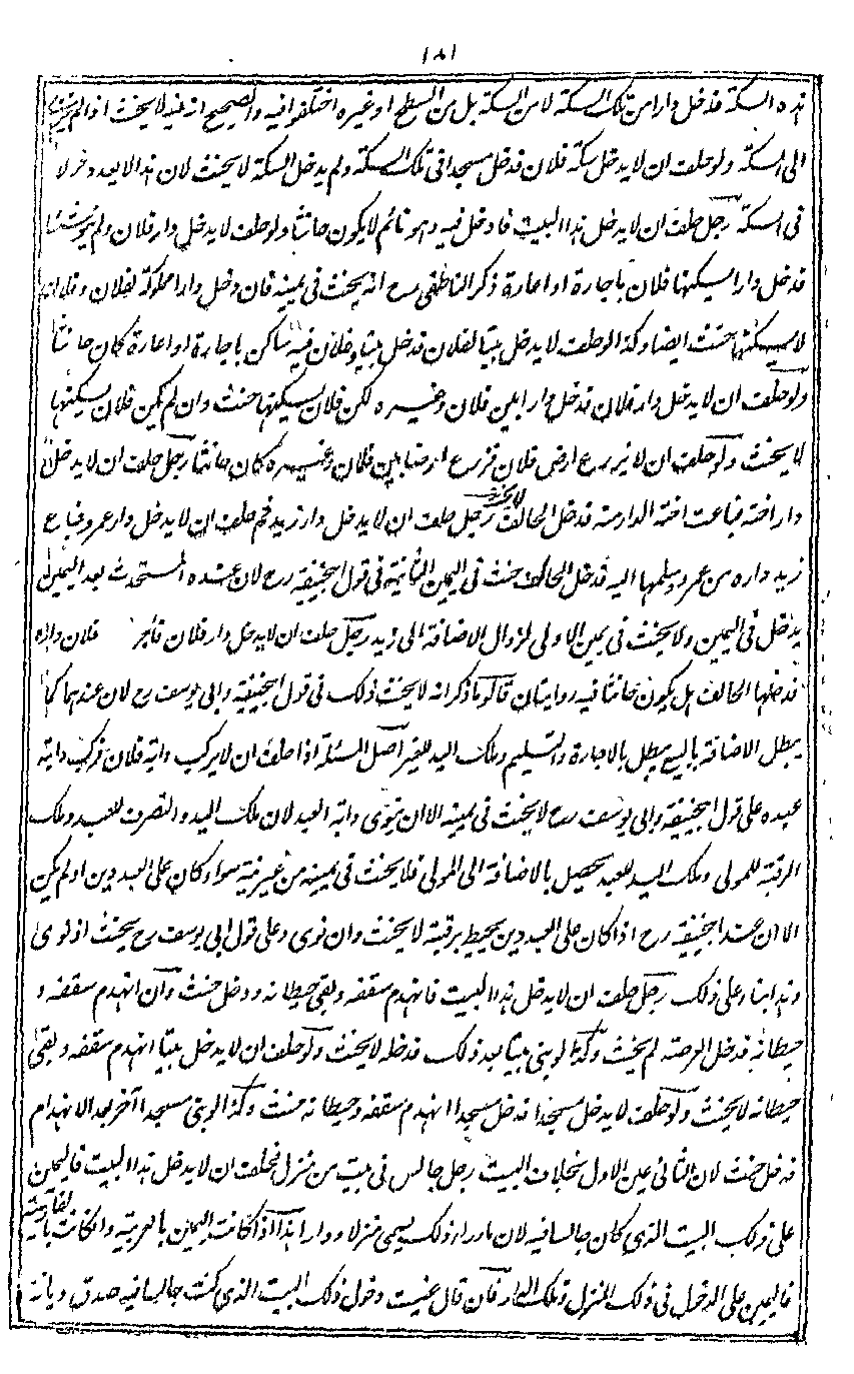 ١٨١
هذه السكة فدخل دارا من تلك السكة لا من السكة بل من السطح او غيره اختلفوا فيه والصحيح انه لا يحنث اذا لم يخرج
الى السكة ولو حلف ان لا يدخل سكة فلان فدخل مسجدا فى تلك السكة ولم يدخل السكة لا يحنث لان هذا لا يعد دخولا
فى السكة رجل حلف ان لا يدخل هذا البيت فادخل فيه وهو نائم لا يكون حانثا ولو حلف لا يدخل دار فلان ولم ينو شيئا
فدخل دارا يسكنها فلان باجارة او اعارة ذكر الناطفى رح انه يحنث فى يمينه فان دخل دارا مملوكة لفلان وفلان
لا يسكنها حنث ايضا وكذا لو حلف لا يدخل بيتا لفلان فدخل بيتا وفلان فيه ساكن باجارة او اعارة كان حانثا
ولو حلف ان لا يدخل دار فلان فدخل دارا بين فلان وغيره لكن فلان يسكنها حنث وان لم يكن فلان يسكنها
لا يحنث ولو حلف ان لا يزرع ارض فلان فزرع ارضا بين فلان وغيره كان حانثا رجل حلف ان لا يدخل
دار اخته فباعت اخته الدار منه فدخل الحالف لا يحنث رجل حلف ان لا يدخل دار زيد ثم حلف ان لا يدخل دار عمرو فباع
زيد داره من عمرو وسلمها اليه فدخل الحالف حنث فى اليمين الثانية فى قول ابيحنيفة رح لان عنده المستحدث بعد اليمين
يدخل فى اليمين ولا يحنث فى يمين الاولى لزوال الاضافة الى زيد رجل حلف ان لا يدخل دار فلان فآجر فلان داره
فدخلها الحالف هل يكون حانثا فيه روايتان قالوا ما ذكر انه لا يحنث ذلك فى قول ابيحنيفة وابى يوسف رح لان عندهما كما
يبطل الاضافة بالبيع يبطل بالاجارة والتسليم وملك اليد للغير اصل المسئلة اذا حلف ان لا يركب دابة فلان فركب دابة
عبده على قول ابيحنيفة وابى يوسف رح لا يحنث فى يمينه الا ان ينوى دابة العبد لان ملك اليد والتصرف للعبد وملك
الرقبة للمولى وملك اليد للعبد يحصل بالاضافة الى المولى فلا يحنث فى يمينه من غير نية سواء كان على العبد دين او لم يكن
الا ان عند ابيحنيفة رح اذا كان على العبد دين يحيط برقبته لا يحنث وان نوى وعلى قول ابى يوسف رح يحنث اذا نوى
وهذا بناء على ذلك رجل حلف ان لا يدخل هذا البيت فانهدم سقفه وبقى حيطانه ودخل حنث وان انهدم سقفه و
حيطانه فدخل العرصة لم يحنث وكذا لو بنى بيتا بعد ذلك فدخله لا يحنث ولو حلف ان لا يدخل بيتا انهدم سقفه وبقى
حيطانه لا يحنث ولو حلف لا يدخل مسجدا فدخل مسجدا انهدم سقفه وحيطانه حنث وكذا لو بنى مسجدا آخر بعد الانهدام
فدخل حنث لان الثانى عين الاول بخلاف البيت رجل جالس فى بيت من منزل فحلف ان لا يدخل هذا البيت فاليمين
على ذلك البيت الذى كان جالسا فيه لان ما وراء ذلك يسمى منزلا ودارا هذا اذا كانت اليمين بالعربية وان كانت بالفارسية
فاليمين على الدخول فى ذلك المنزل وتلك الدار فان قال عنيت دخول ذلك البيت الذى كنت جالسا فيه صدق ديانة